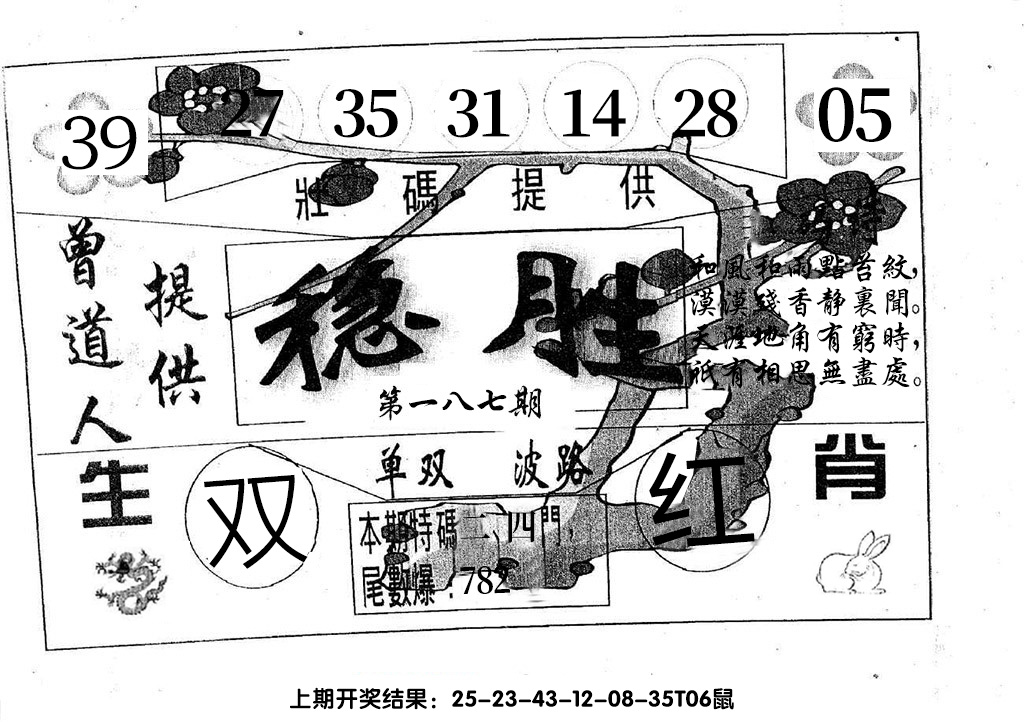 39 27 35 31 14 28 05
壯碼提供
特
曾道人
提供
稳胜
第一八七期
和風和雨點苔紋，
漠漠殘香静裏聞。
天涯地角有窮時，
祇有相思無盡處。
单双 波路
生肖
双
红
本期特碼二、四門，
尾數爆：782
上期开奖结果：25-23-43-12-08-35T06鼠